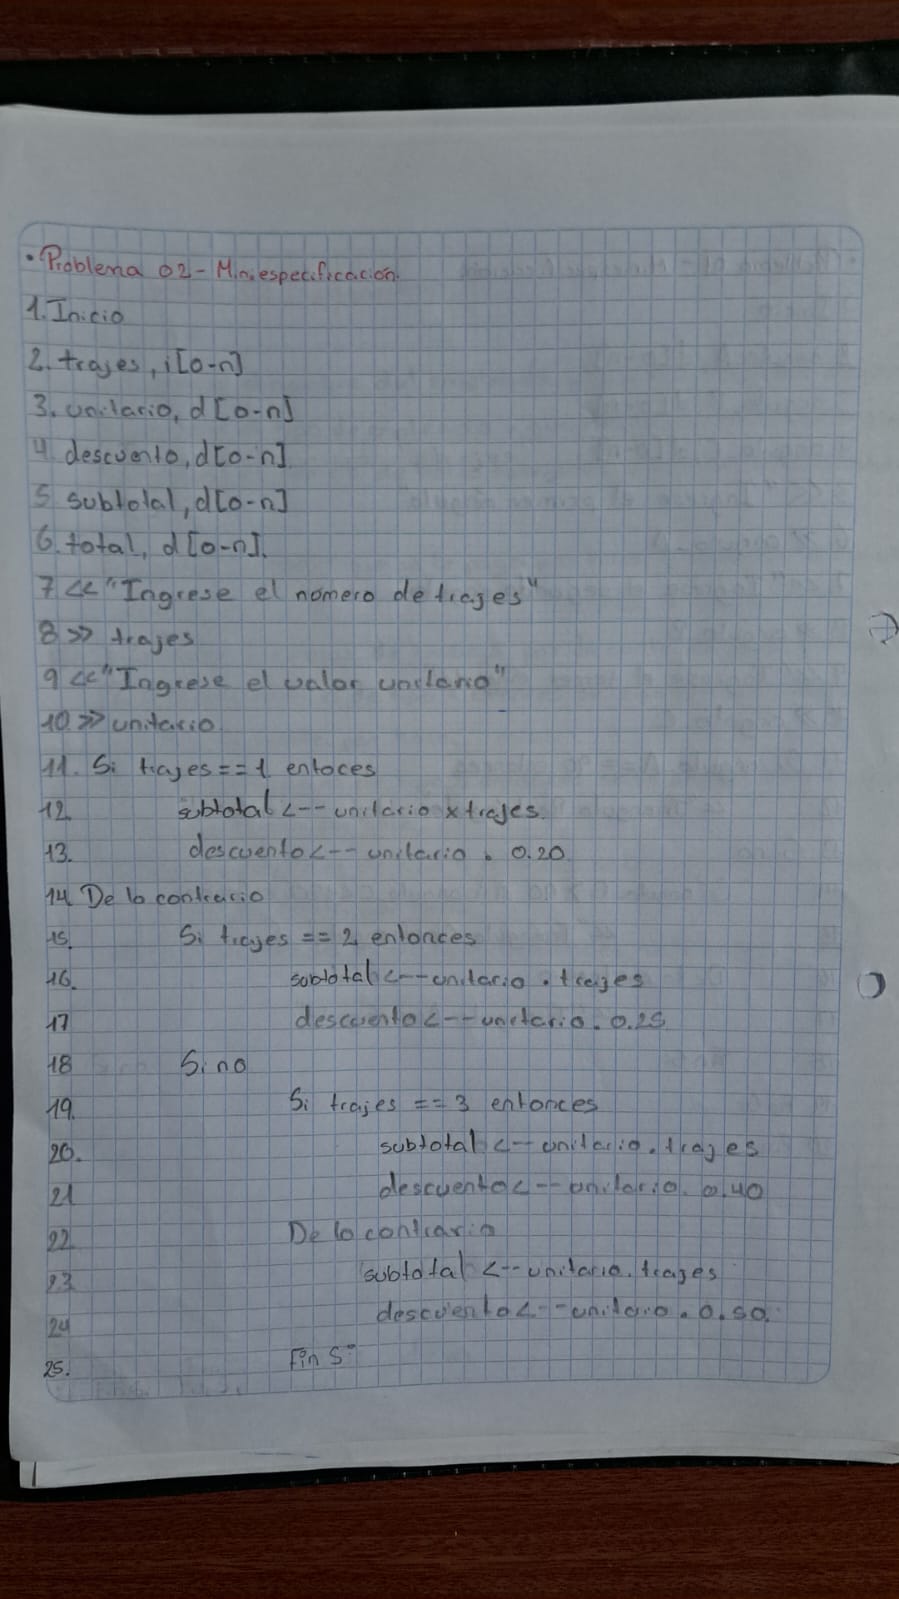 • Problema 02- Miniespecificación.
1. Inicio
2. trajes, i [0-n]
3. unitario, d [0-n]
4 descuento, d[0-n]
5 subtotal, d[0-n]
6. total, d [0-n].
7 << "Ingrese el número de trajes"
8 >> trajes
9 << "Ingrese el valor unitario"
10 >> unitario
11. Si trajes == 1 entoces
12. subtotal <-- unitario x trajes.
13. descuento <-- unitario . 0.20
14. De lo contrario
15. Si trajes == 2 entonces
16. subtotal <-- unitario . trajes
17 descuento <-- unitario . 0.25
18 Sino
19. Si trajes == 3 entonces
20. subtotal <-- unitario . trajes
21 descuento <-- unitario . 0.40
22 De lo contrario
23 subtotal <-- unitario . trajes
24 descuento <-- unitario . 0.50.
25. Fin Si